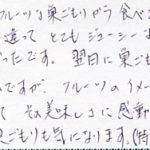 フルーツな巣ごもりがラ 食べ
違って とても ジューシーな
ったです。 翌日に巣ごも
のですが、フルーツのイメー
て その美味しさに感動
巣ごもりも気になります。(特